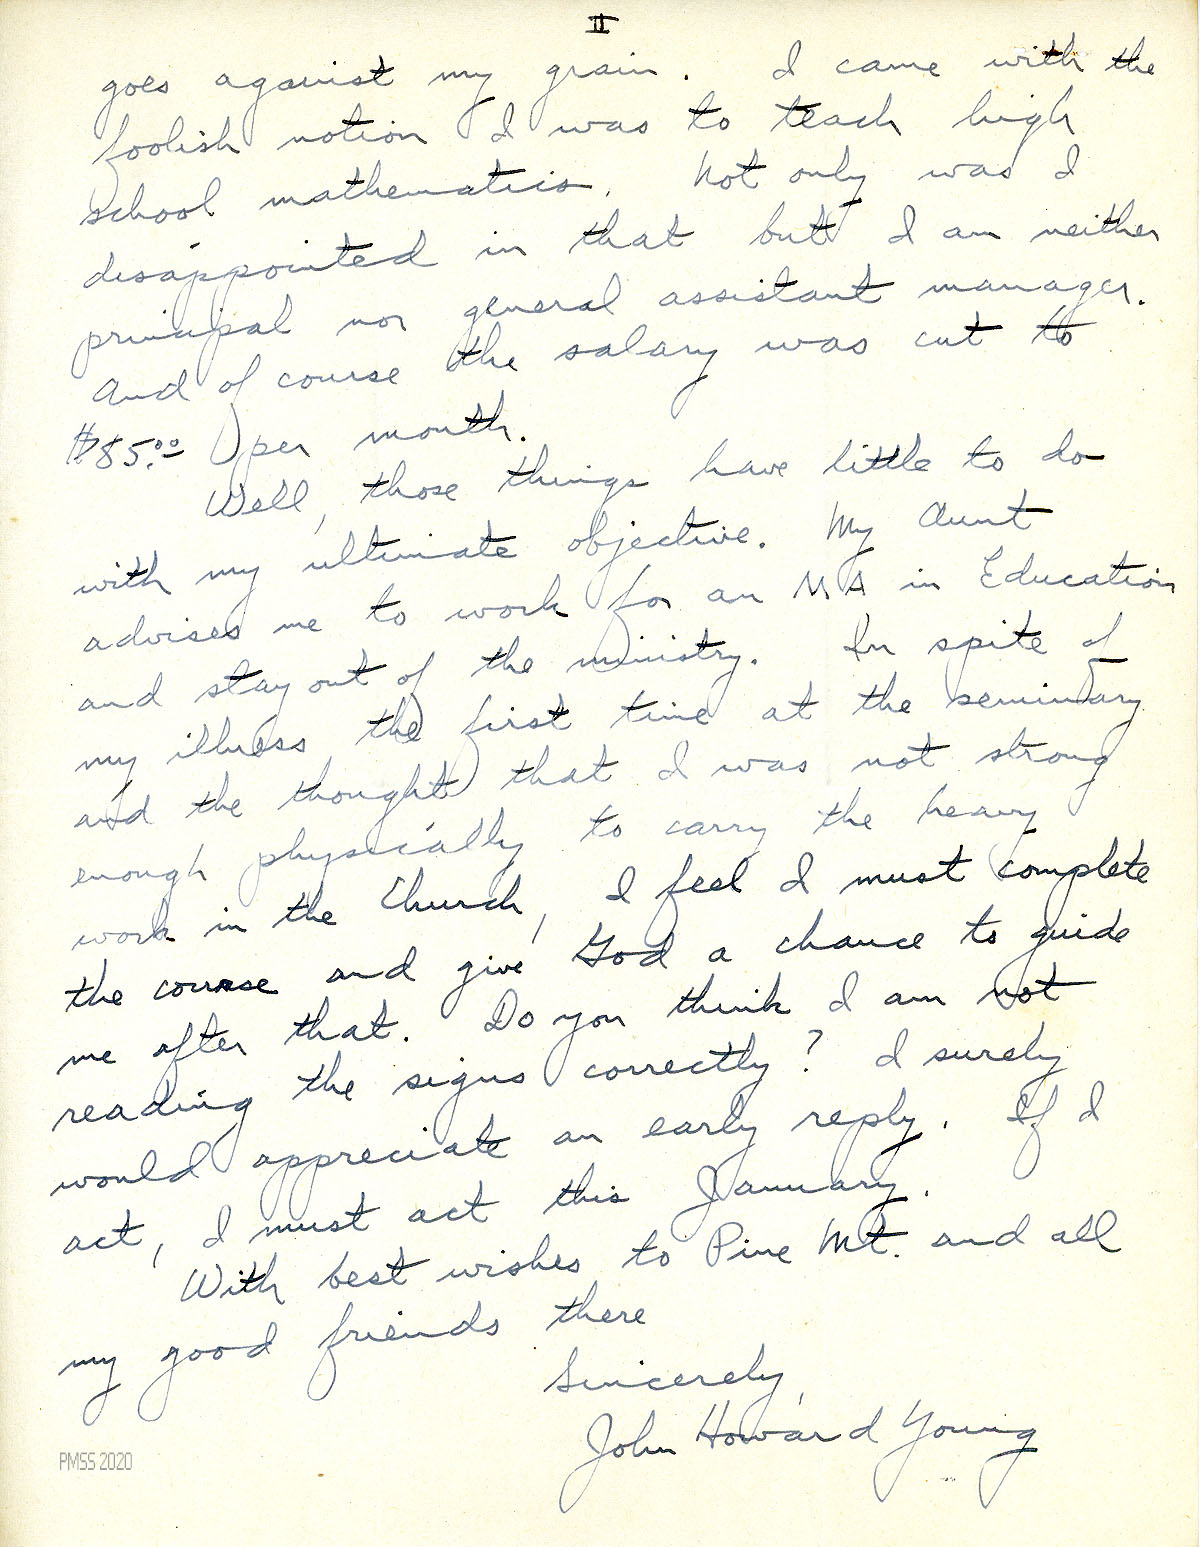 II
goes against my grain. I came with the
foolish notion I was to teach high
school mathematics. Not only was I
disappointed in that but I am neither
principal nor general assistant manager.
And of course the salary was cut to
$85.00 per month.
Well, those things have little to do
with my ultimate objective. My Aunt
advises me to work for an MA in Education
and stay out of the ministry. In spite of
my illness the first time at the seminary
and the thought that I was not strong
enough physically to carry the heavy
work in the Church, I feel I must complete
the course and give God a chance to guide
me after that. Do you think I am not
reading the signs correctly? I surely
would appreciate an early reply. If I
act, I must act this January.
With best wishes to Pine Mt. and all
my good friends there
Sincerely,
John Howard Young
PMSS 2020